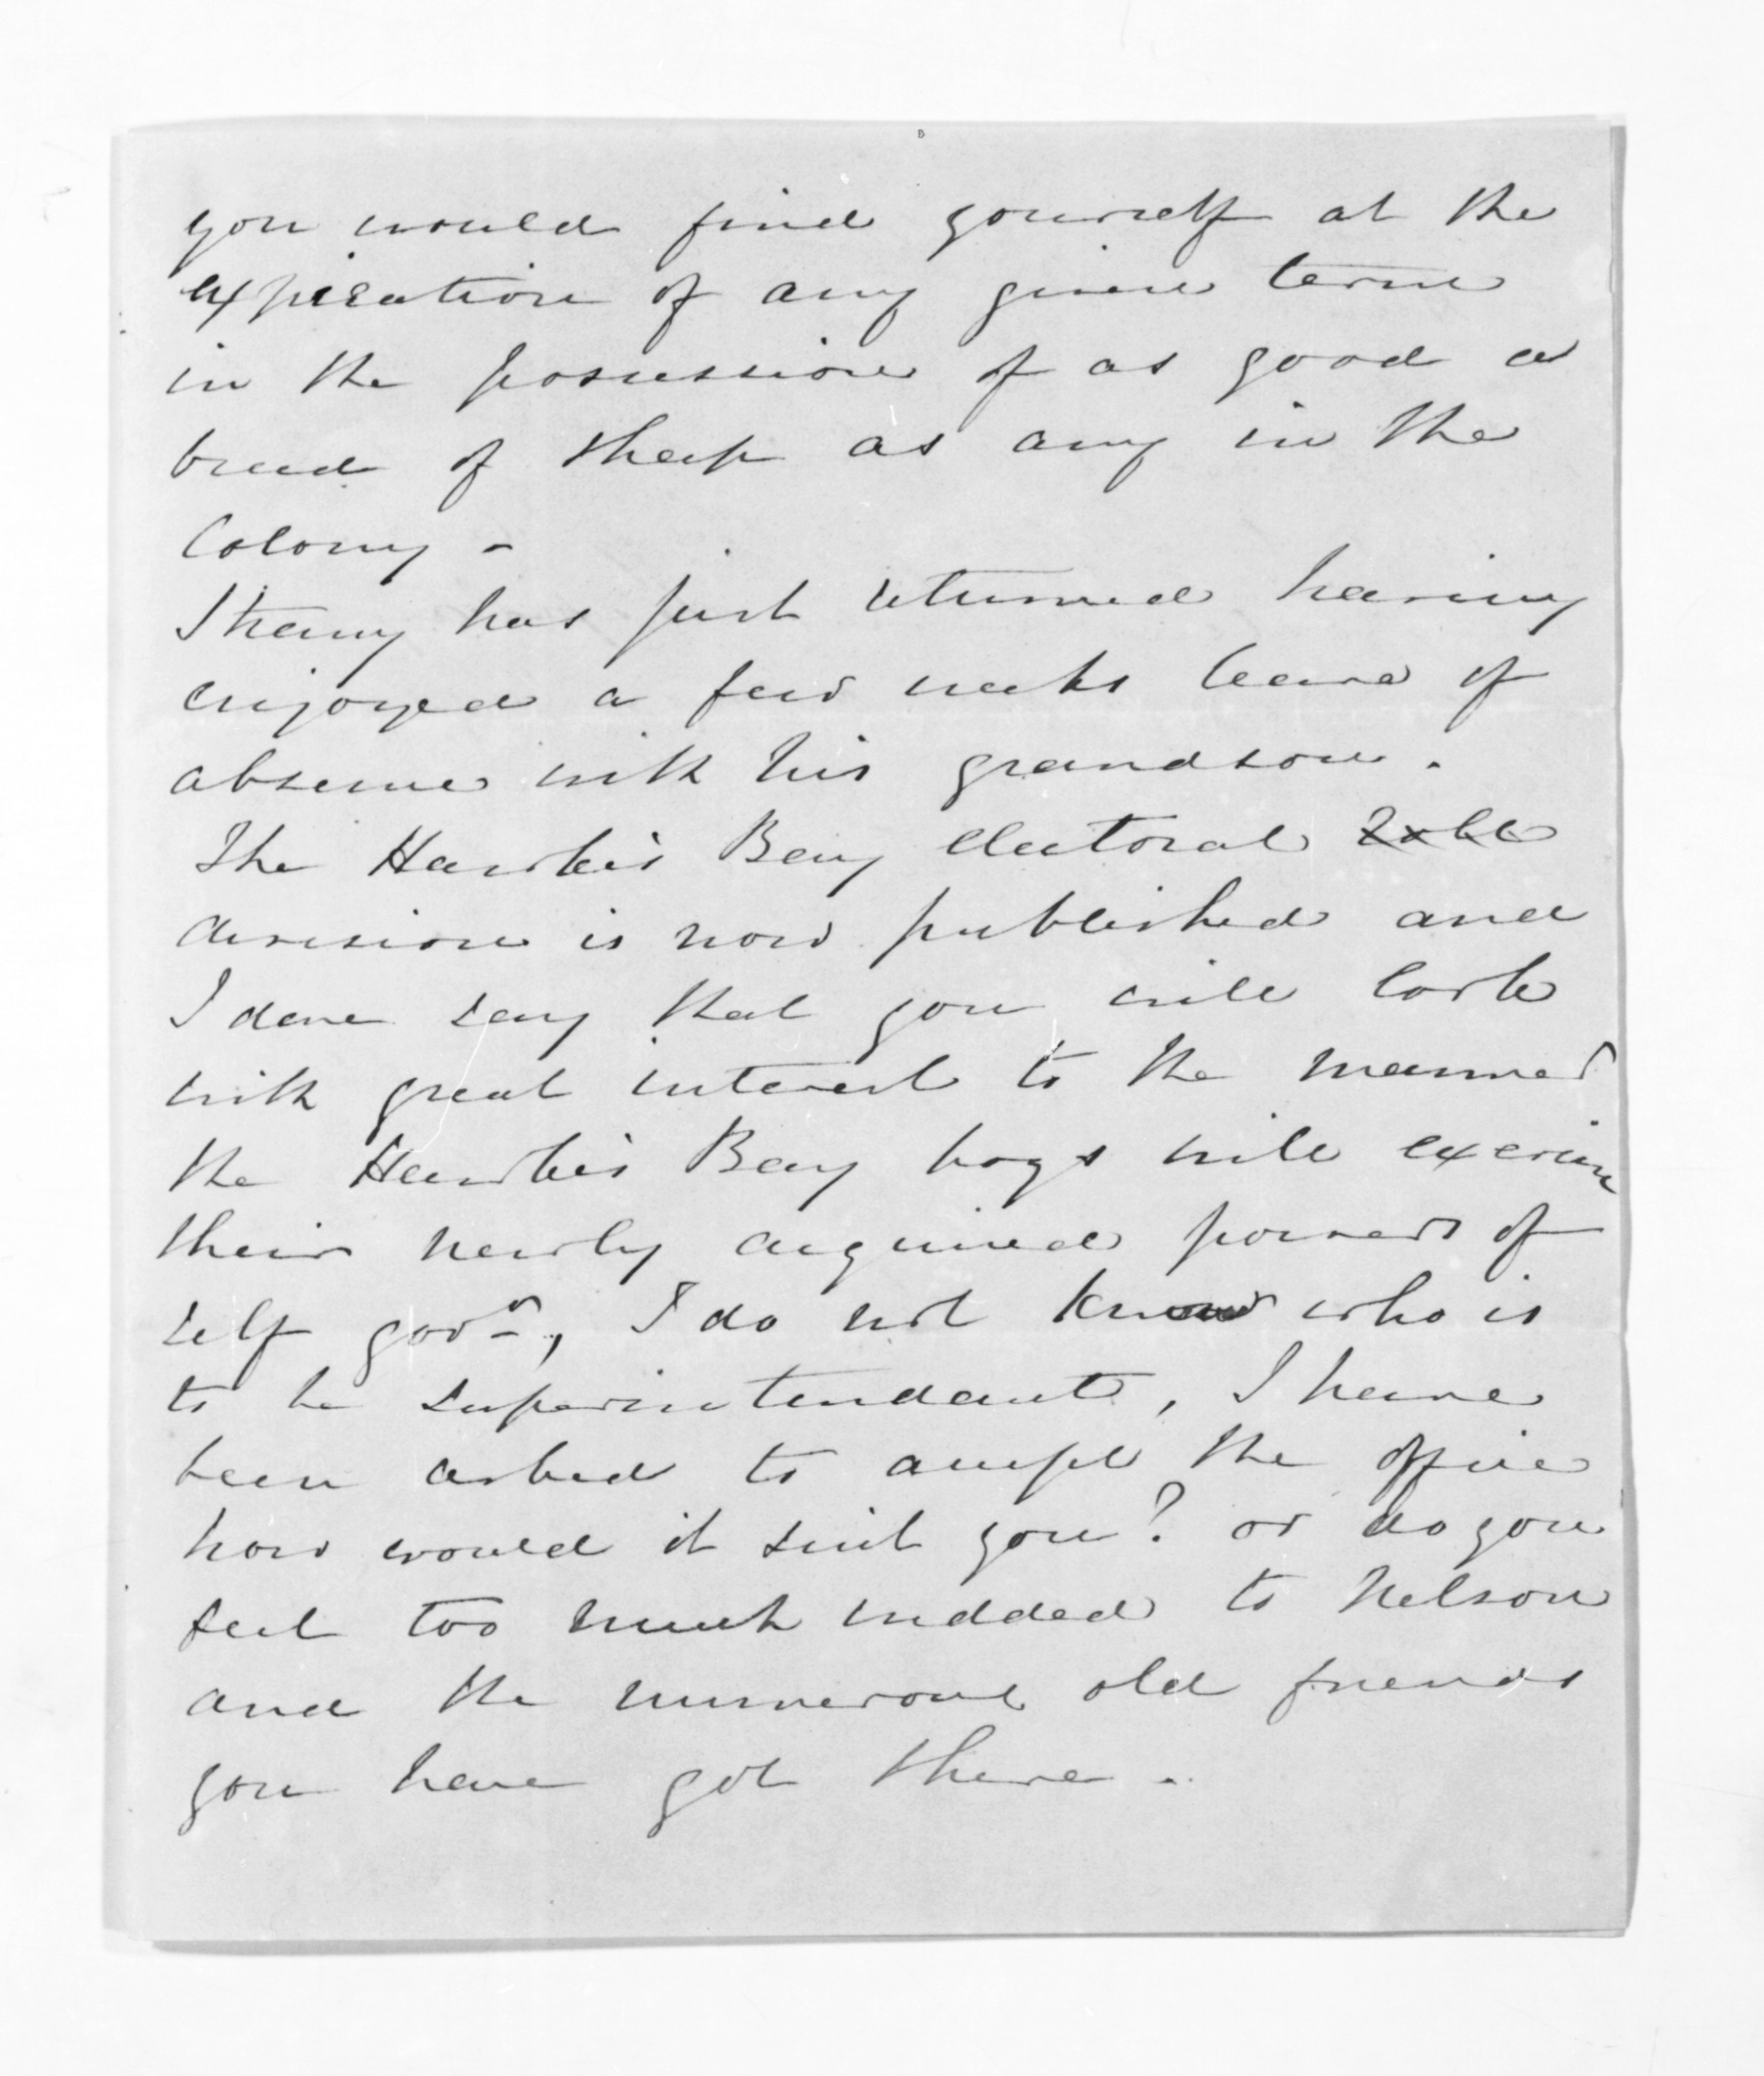 you would find yourself at the
expiration of any given term
in the possession of as good a
breed of sheep as any in the
Colony -
has just returned having
enjoyed a few weeks leave of
absence with his grandson.
The Hawke's Bay electoral
division is now published and
I dare say that you will look
with great interest to the manner
the Hawke's Bay boys will exercise
their newly acquired powers of
self govn., I do not know who is
to be superintendant, I have
been asked to accept the office
how would it suit you? or do you
feel too much wedded to Nelson
and the numerous old friends
you have got there -